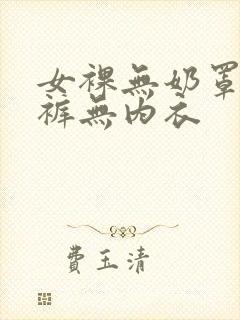 女裸無奶罩
裤無內衣
費玉清